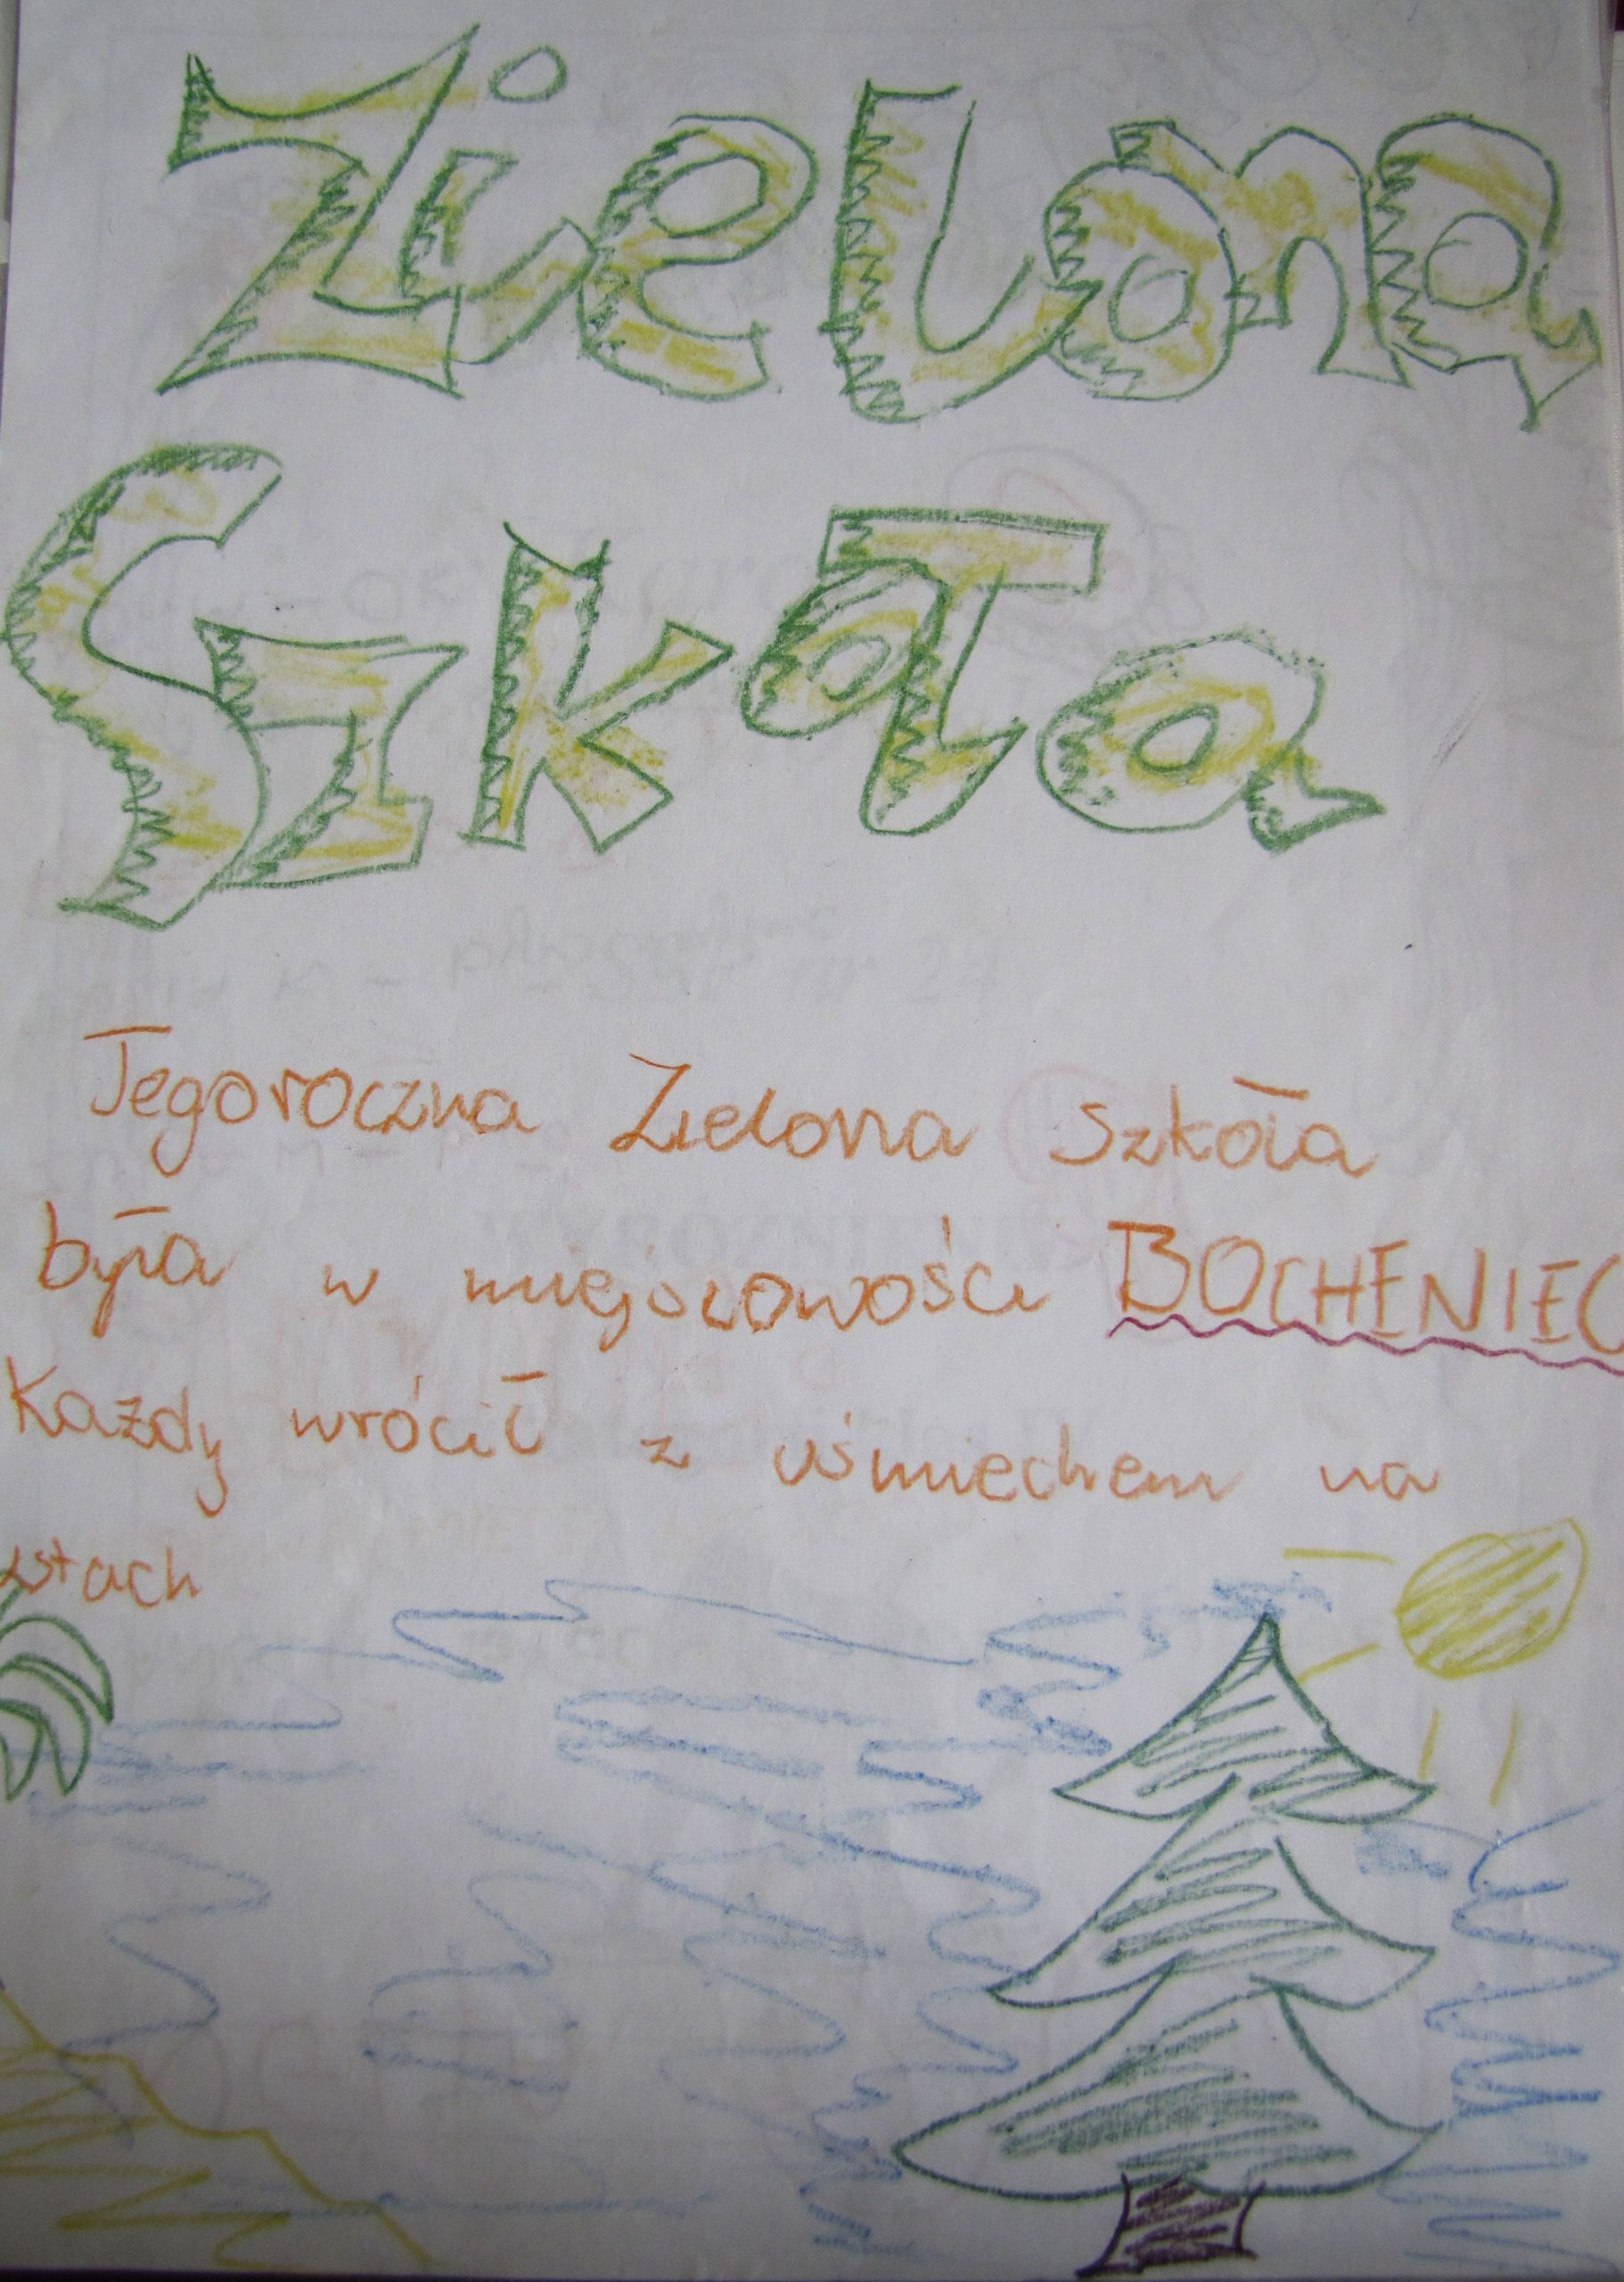 Zielona
Szkoła
Tegoroczna Zielona szkoła
była w miejscowości BOCHENIEC
Każdy wrócił z uśmiechem na
ustach